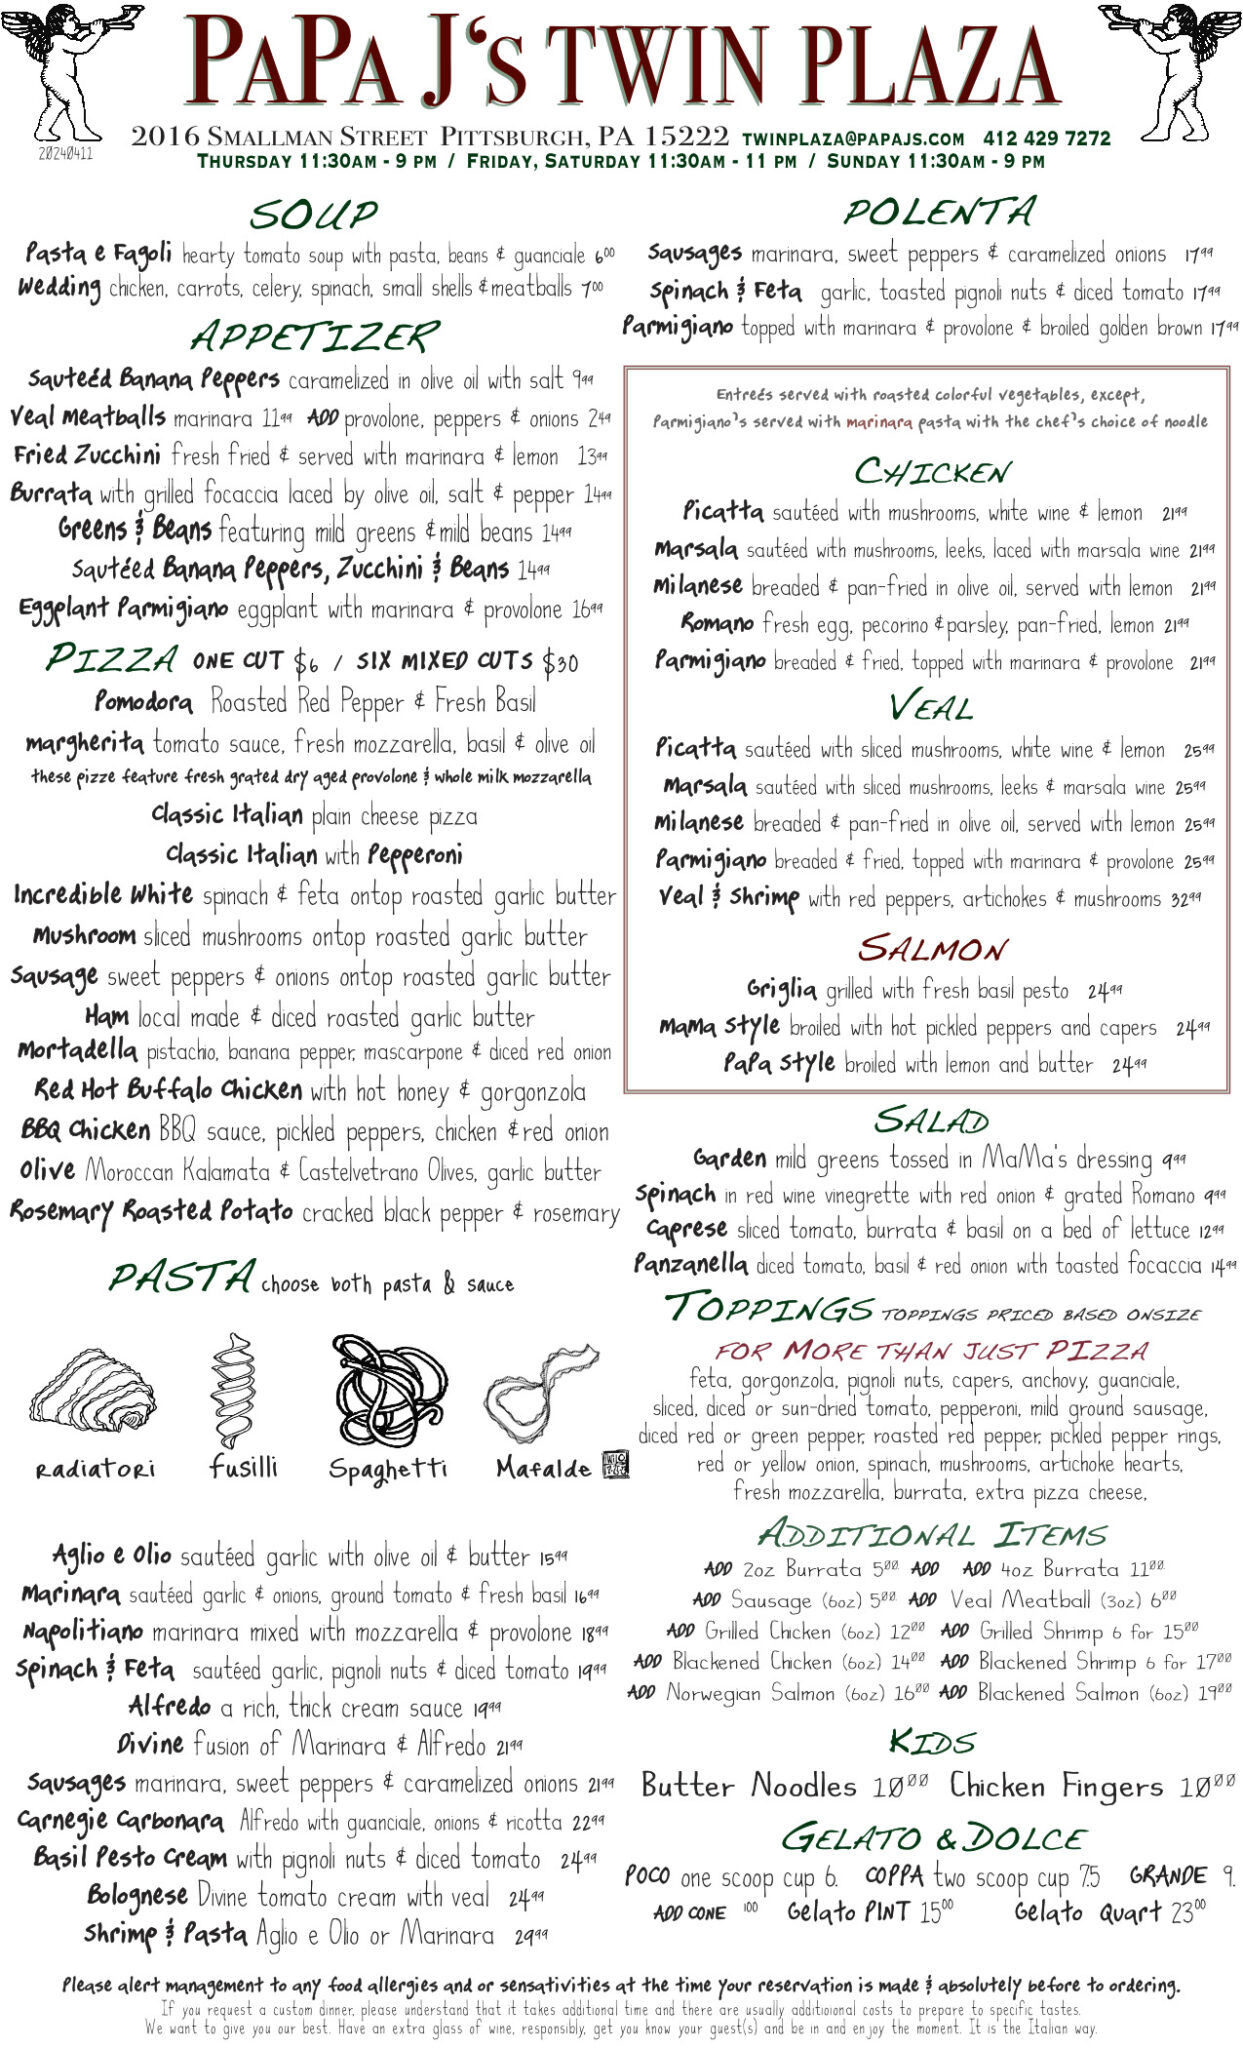 PaPa J's TWIN PLAZA
2016 Smallman Street Pittsburgh, PA 15222 twinplaza@papajs.com 412 429 7272
20240411
Thursday 11:30am - 9 pm / Friday, Saturday 11:30am - 11 pm / Sunday 11:30am - 9 pm
SOUP
Pasta e Fagoli hearty tomato soup with pasta, beans & guanciale 6⁰⁰
Wedding chicken, carrots, celery, spinach, small shells & meatballs 7⁰⁰
APPETIZER
Sauteéd Banana Peppers caramelized in olive oil with salt 9⁹⁹
Veal Meatballs marinara 11⁹⁹ ADD provolone, peppers & onions 2⁴⁹
Fried Zucchini fresh fried & served with marinara & lemon 13⁹⁹
Burrata with grilled focaccia laced by olive oil, salt & pepper 14⁹⁹
Greens & Beans featuring mild greens & mild beans 14⁹⁹
Sautéed Banana Peppers, Zucchini & Beans 14⁹⁹
Eggplant Parmigiano eggplant with marinara & provolone 16⁹⁹
PIZZA ONE CUT $6 / SIX MIXED CUTS $30
Pomodora Roasted Red Pepper & Fresh Basil
margherita tomato sauce, fresh mozzarella, basil & olive oil
these pizze feature fresh grated dry aged provolone & whole milk mozzarella
Classic Italian plain cheese pizza
Classic Italian with Pepperoni
Incredible White spinach & feta ontop roasted garlic butter
Mushroom sliced mushrooms ontop roasted garlic butter
Sausage sweet peppers & onions ontop roasted garlic butter
Ham local made & diced roasted garlic butter
Mortadella pistachio, banana pepper, mascarpone & diced red onion
Red Hot Buffalo Chicken with hot honey & gorgonzola
BBQ Chicken BBQ sauce, pickled peppers, chicken & red onion
Olive Moroccan Kalamata & Castelvetrano Olives, garlic butter
Rosemary Roasted Potato cracked black pepper & rosemary
PASTA choose both pasta & sauce
Radiatori fusilli Spaghetti Mafalde
Aglio e Olio sautéed garlic with olive oil & butter 15⁹⁹
Marinara sautéed garlic & onions, ground tomato & fresh basil 16⁹⁹
Napolitiano marinara mixed with mozzarella & provolone 18⁹⁹
Spinach & Feta sautéed garlic, pignoli nuts & diced tomato 19⁹⁹
Alfredo a rich, thick cream sauce 19⁹⁹
Divine fusion of Marinara & Alfredo 21⁹⁹
Sausages marinara, sweet peppers & caramelized onions 21⁹⁹
Carnegie Carbonara Alfredo with guanciale, onions & ricotta 22⁹⁹
Basil Pesto Cream with pignoli nuts & diced tomato 24⁹⁹
Bolognese Divine tomato cream with veal 24⁹⁹
Shrimp & Pasta Aglio e Olio or Marinara 29⁹⁹
POLENTA
Sausages marinara, sweet peppers & caramelized onions 17⁹⁹
Spinach & Feta garlic, toasted pignoli nuts & diced tomato 17⁹⁹
Parmigiano topped with marinara & provolone & broiled golden brown 17⁹⁹
Entreés served with roasted colorful vegetables, except,
Parmigiano's served with marinara pasta with the chef's choice of noodle
CHICKEN
Picatta sautéed with mushrooms, white wine & lemon 21⁹⁹
Marsala sautéed with mushrooms, leeks, laced with marsala wine 21⁹⁹
Milanese breaded & pan-fried in olive oil, served with lemon 21⁹⁹
Romano fresh egg, pecorino & parsley, pan-fried, lemon 21⁹⁹
Parmigiano breaded & fried, topped with marinara & provolone 21⁹⁹
VEAL
Picatta sautéed with sliced mushrooms, white wine & lemon 25⁹⁹
Marsala sautéed with sliced mushrooms, leeks & marsala wine 25⁹⁹
Milanese breaded & pan-fried in olive oil, served with lemon 25⁹⁹
Parmigiano breaded & fried, topped with marinara & provolone 25⁹⁹
Veal & Shrimp with red peppers, artichokes & mushrooms 32⁹⁹
SALMON
Griglia grilled with fresh basil pesto 24⁹⁹
MaMa Style broiled with hot pickled peppers and capers 24⁹⁹
PaPa Style broiled with lemon and butter 24⁹⁹
SALAD
Garden mild greens tossed in MaMa's dressing 9⁹⁹
Spinach in red wine vinegrette with red onion & grated Romano 9⁹⁹
Caprese sliced tomato, burrata & basil on a bed of lettuce 12⁹⁹
Panzanella diced tomato, basil & red onion with toasted focaccia 14⁹⁹
TOPPINGS TOPPINGS PRICED BASED ONSIZE
FOR MORE THAN JUST PIZZA
feta, gorgonzola, pignoli nuts, capers, anchovy, guanciale,
sliced, diced or sun-dried tomato, pepperoni, mild ground sausage,
diced red or green pepper, roasted red pepper, pickled pepper rings,
red or yellow onion, spinach, mushrooms, artichoke hearts,
fresh mozzarella, burrata, extra pizza cheese,
ADDITIONAL ITEMS
ADD 2oz Burrata 5⁰⁰ ADD ADD 4oz Burrata 11⁰⁰
ADD Sausage (6oz) 5⁰⁰ ADD Veal Meatball (3oz) 6⁰⁰
ADD Grilled Chicken (6oz) 12⁰⁰ ADD Grilled Shrimp 6 for 15⁰⁰
ADD Blackened Chicken (6oz) 14⁰⁰ ADD Blackened Shrimp 6 for 17⁰⁰
ADD Norwegian Salmon (6oz) 16⁰⁰ ADD Blackened Salmon (6oz) 19⁰⁰
KIDS
Butter Noodles 10⁰⁰ Chicken Fingers 10⁰⁰
GELATO & DOLCE
POCO one scoop cup 6. COPPA two scoop cup 7.5 GRANDE 9.
ADD CONE 1⁰⁰ Gelato PINT 15⁰⁰ Gelato Quart 23⁰⁰
Please alert management to any food allergies and or sensativities at the time your reservation is made & absolutely before to ordering.
If you request a custom dinner, please understand that it takes additional time and there are usually additioional costs to prepare to specific tastes.
We want to give you our best. Have an extra glass of wine, responsibly, get you know your guest(s) and be in and enjoy the moment. It is the Italian way.